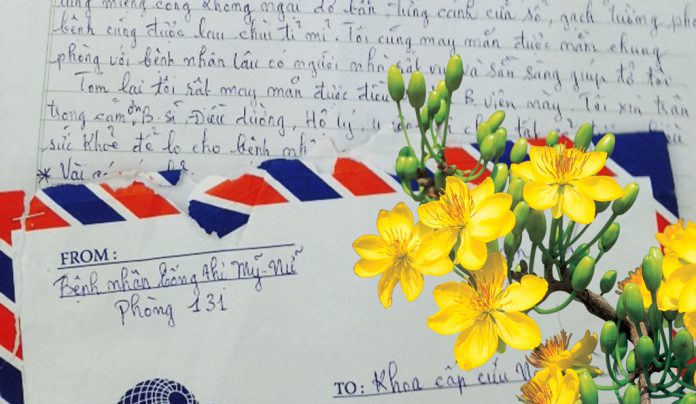 từng miếng công không ngại dơ bẩn, từng cánh cửa sổ, gạch tường
bệnh cũng được lau chùi tỉ mỉ. Tôi cũng may mắn được nằm chung
phòng với bệnh nhân lâu có người nhà rất vui và sẵn sàng giúp đỡ tôi
Tóm lại tôi rất may mắn được điều B. viện này. Tôi xin trân
trọng cảm ơn B. sĩ, Điều dưỡng, Hộ lý,
sức khỏe để lo cho bệnh
* Vài
FROM:
Bệnh nhân Tống thị Mỹ-Nữ
Phòng 131
TO: Khoa cấp cứu